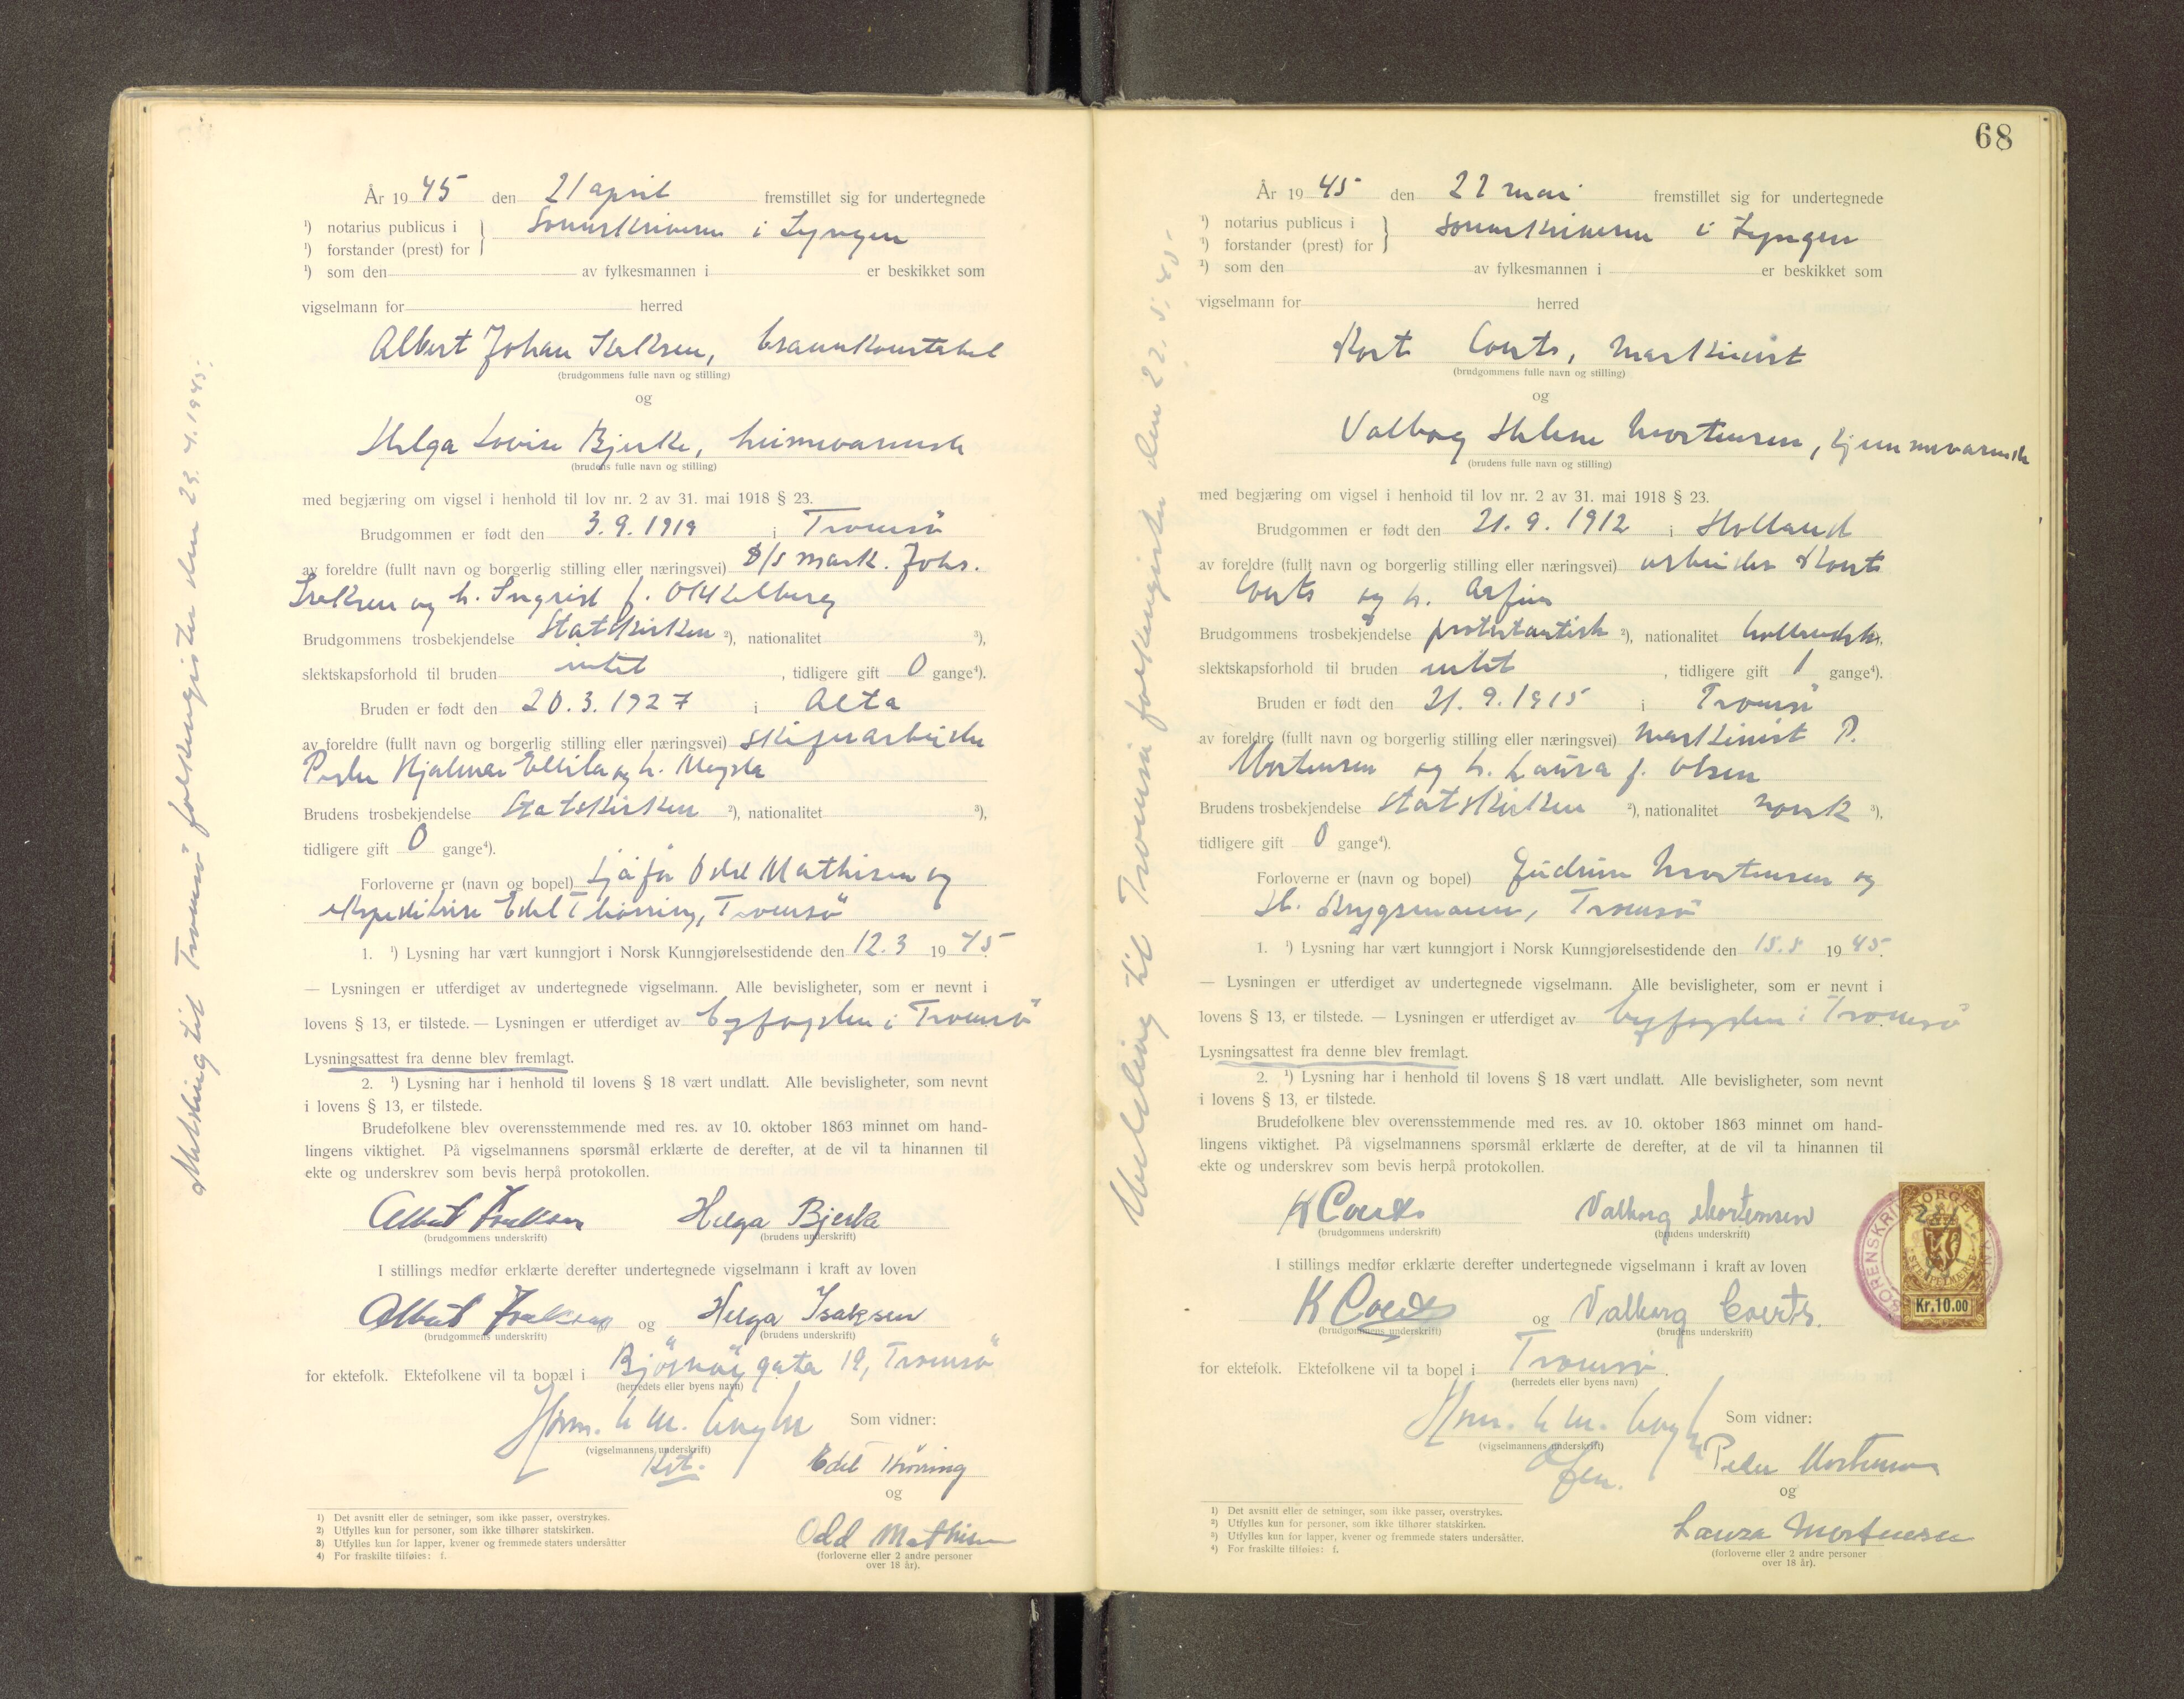 Melding til Tromsø folkeregister den 23.4.1945.
År 1945 den 21 april fremstillet sig for undertegnede
¹) notarius publicus i
¹) forstander (prest) for
Sorenskriveren i Lyngen
¹) som den av fylkesmannen i er beskikket som
vigselmann for herred
Albert Johan Isaksen, brannkonstabel
(brudgommens fulle navn og stilling)
og
Helga Lovise Bjerke, heimeværende
(brudens fulle navn og stilling)
med begjæring om vigsel i henhold til lov nr. 2 av 31. mai 1918 § 23.
Brudgommen er født den 3.9.1919 i Tromsö
av foreldre (fullt navn og borgerlig stilling eller næringsvei) D/S mask. Johs.
Isaksen og h. Ingrid f. Okkelberg
Brudgommens trosbekjendelse Statskirken ²), nationalitet ³),
slektskapsforhold til bruden intet , tidligere gift 0 gange⁴).
Bruden er født den 20.3.1927 i Alta
av foreldre (fullt navn og borgerlig stilling eller næringsvei) skiferarbeider
Peder Hjalmar og h. Magda
Brudens trosbekjendelse Statskirken ²), nationalitet ³),
tidligere gift 0 gange⁴).
Forloverne er (navn og bopel) sjåfør Odd Mathisen og
ekspeditrise Edel Thörring, Tromsö
1. ¹) Lysning har vært kunngjort i Norsk Kunngjørelsestidende den 12.3 1945.
— Lysningen er utferdiget av undertegnede vigselmann. Alle bevisligheter, som er nevnt i
lovens § 13, er tilstede. — Lysningen er utferdiget av byfogden i Tromsö
Lysningsattest fra denne blev fremlagt.
2. ¹) Lysning har i henhold til lovens § 18 vært undlatt. Alle bevisligheter, som nevnt
i lovens § 13, er tilstede.
Brudefolkene blev overensstemmende med res. av 10. oktober 1863 minnet om hand-
lingens viktighet. På vigselmannens spørsmål erklærte de derefter, at de vil ta hinannen til
ekte og underskrev som bevis herpå protokollen.
Albert Isaksen Helga Bjerke
(brudgommens underskrift) (brudens underskrift)
I stillings medfør erklærte derefter undertegnede vigselmann i kraft av loven
Albert Isaksen og Helga Isaksen
(brudgommens underskrift) (brudens underskrift)
for ektefolk. Ektefolkene vil ta bopæl i Björnöygata 19, Tromsö
(herredets eller byens navn)
Som vidner:
(vigselmannens underskrift)
Edel Thörring
og
Odd Mathisen
(forloverne eller 2 andre personer
over 18 år).
1) Det avsnitt eller de setninger, som ikke passer, overstrykes.
2) Utfylles kun for personer, som ikke tilhører statskirken.
3) Utfylles kun for lapper, kvener og fremmede staters undersåtter
4) For fraskilte tilføies: f.
68
Melding til Tromsö folkeregister den 22.5.45.
År 1945 den 22 mai fremstillet sig for undertegnede
¹) notarius publicus i
¹) forstander (prest) for
Sorenskriveren i Lyngen
¹) som den av fylkesmannen i er beskikket som
vigselmann for herred
Kort Coerts, maskinist
(brudgommens fulle navn og stilling)
og
Valborg Helene Mortensen, hjemmeværende
(brudens fulle navn og stilling)
med begjæring om vigsel i henhold til lov nr. 2 av 31. mai 1918 § 23.
Brudgommen er født den 21.9.1912 i Holland
av foreldre (fullt navn og borgerlig stilling eller næringsvei) arbeider Kort
Coerts og h.
Brudgommens trosbekjendelse protestantisk ²), nationalitet hollandsk ³),
slektskapsforhold til bruden intet , tidligere gift 1 gange⁴).
Bruden er født den 21.9.1915 i Tromsö
av foreldre (fullt navn og borgerlig stilling eller næringsvei) maskinist P.
Mortensen og h. Laura f. Olsen
Brudens trosbekjendelse statskirken ²), nationalitet norsk ³),
tidligere gift 0 gange⁴).
Forloverne er (navn og bopel) Gudrun Mortensen og
H. Krygsmann, Tromsö
1. ¹) Lysning har vært kunngjort i Norsk Kunngjørelsestidende den 15.5 1945.
— Lysningen er utferdiget av undertegnede vigselmann. Alle bevisligheter, som er nevnt i
lovens § 13, er tilstede. — Lysningen er utferdiget av byfogden i Tromsö
Lysningsattest fra denne blev fremlagt.
2. ¹) Lysning har i henhold til lovens § 18 vært undlatt. Alle bevisligheter, som nevnt
i lovens § 13, er tilstede.
Brudefolkene blev overensstemmende med res. av 10. oktober 1863 minnet om hand-
lingens viktighet. På vigselmannens spørsmål erklærte de derefter, at de vil ta hinannen til
ekte og underskrev som bevis herpå protokollen.
K Coerts Valborg Mortensen
(brudgommens underskrift) (brudens underskrift)
I stillings medfør erklærte derefter undertegnede vigselmann i kraft av loven
K Coerts og Valborg Coerts.
(brudgommens underskrift) (brudens underskrift)
NORGE
STEMPELMERKE
Kr.10.00
SORENSKRI
for ektefolk. Ektefolkene vil ta bopel i Tromsö.
(herredets eller byens navn)
Som vidner:
(vigselmannens underskrift)
Peder Mortensen
og
Laura Mortensen
(forloverne eller 2 andre personer
over 18 år).
1) Det avsnitt eller de setninger, som ikke passer, overstrykes.
2) Utfylles kun for personer, som ikke tilhører statskirken.
3) Utfylles kun for lapper, kvener og fremmede staters undersåtter.
4) For fraskilte tilføies: f.